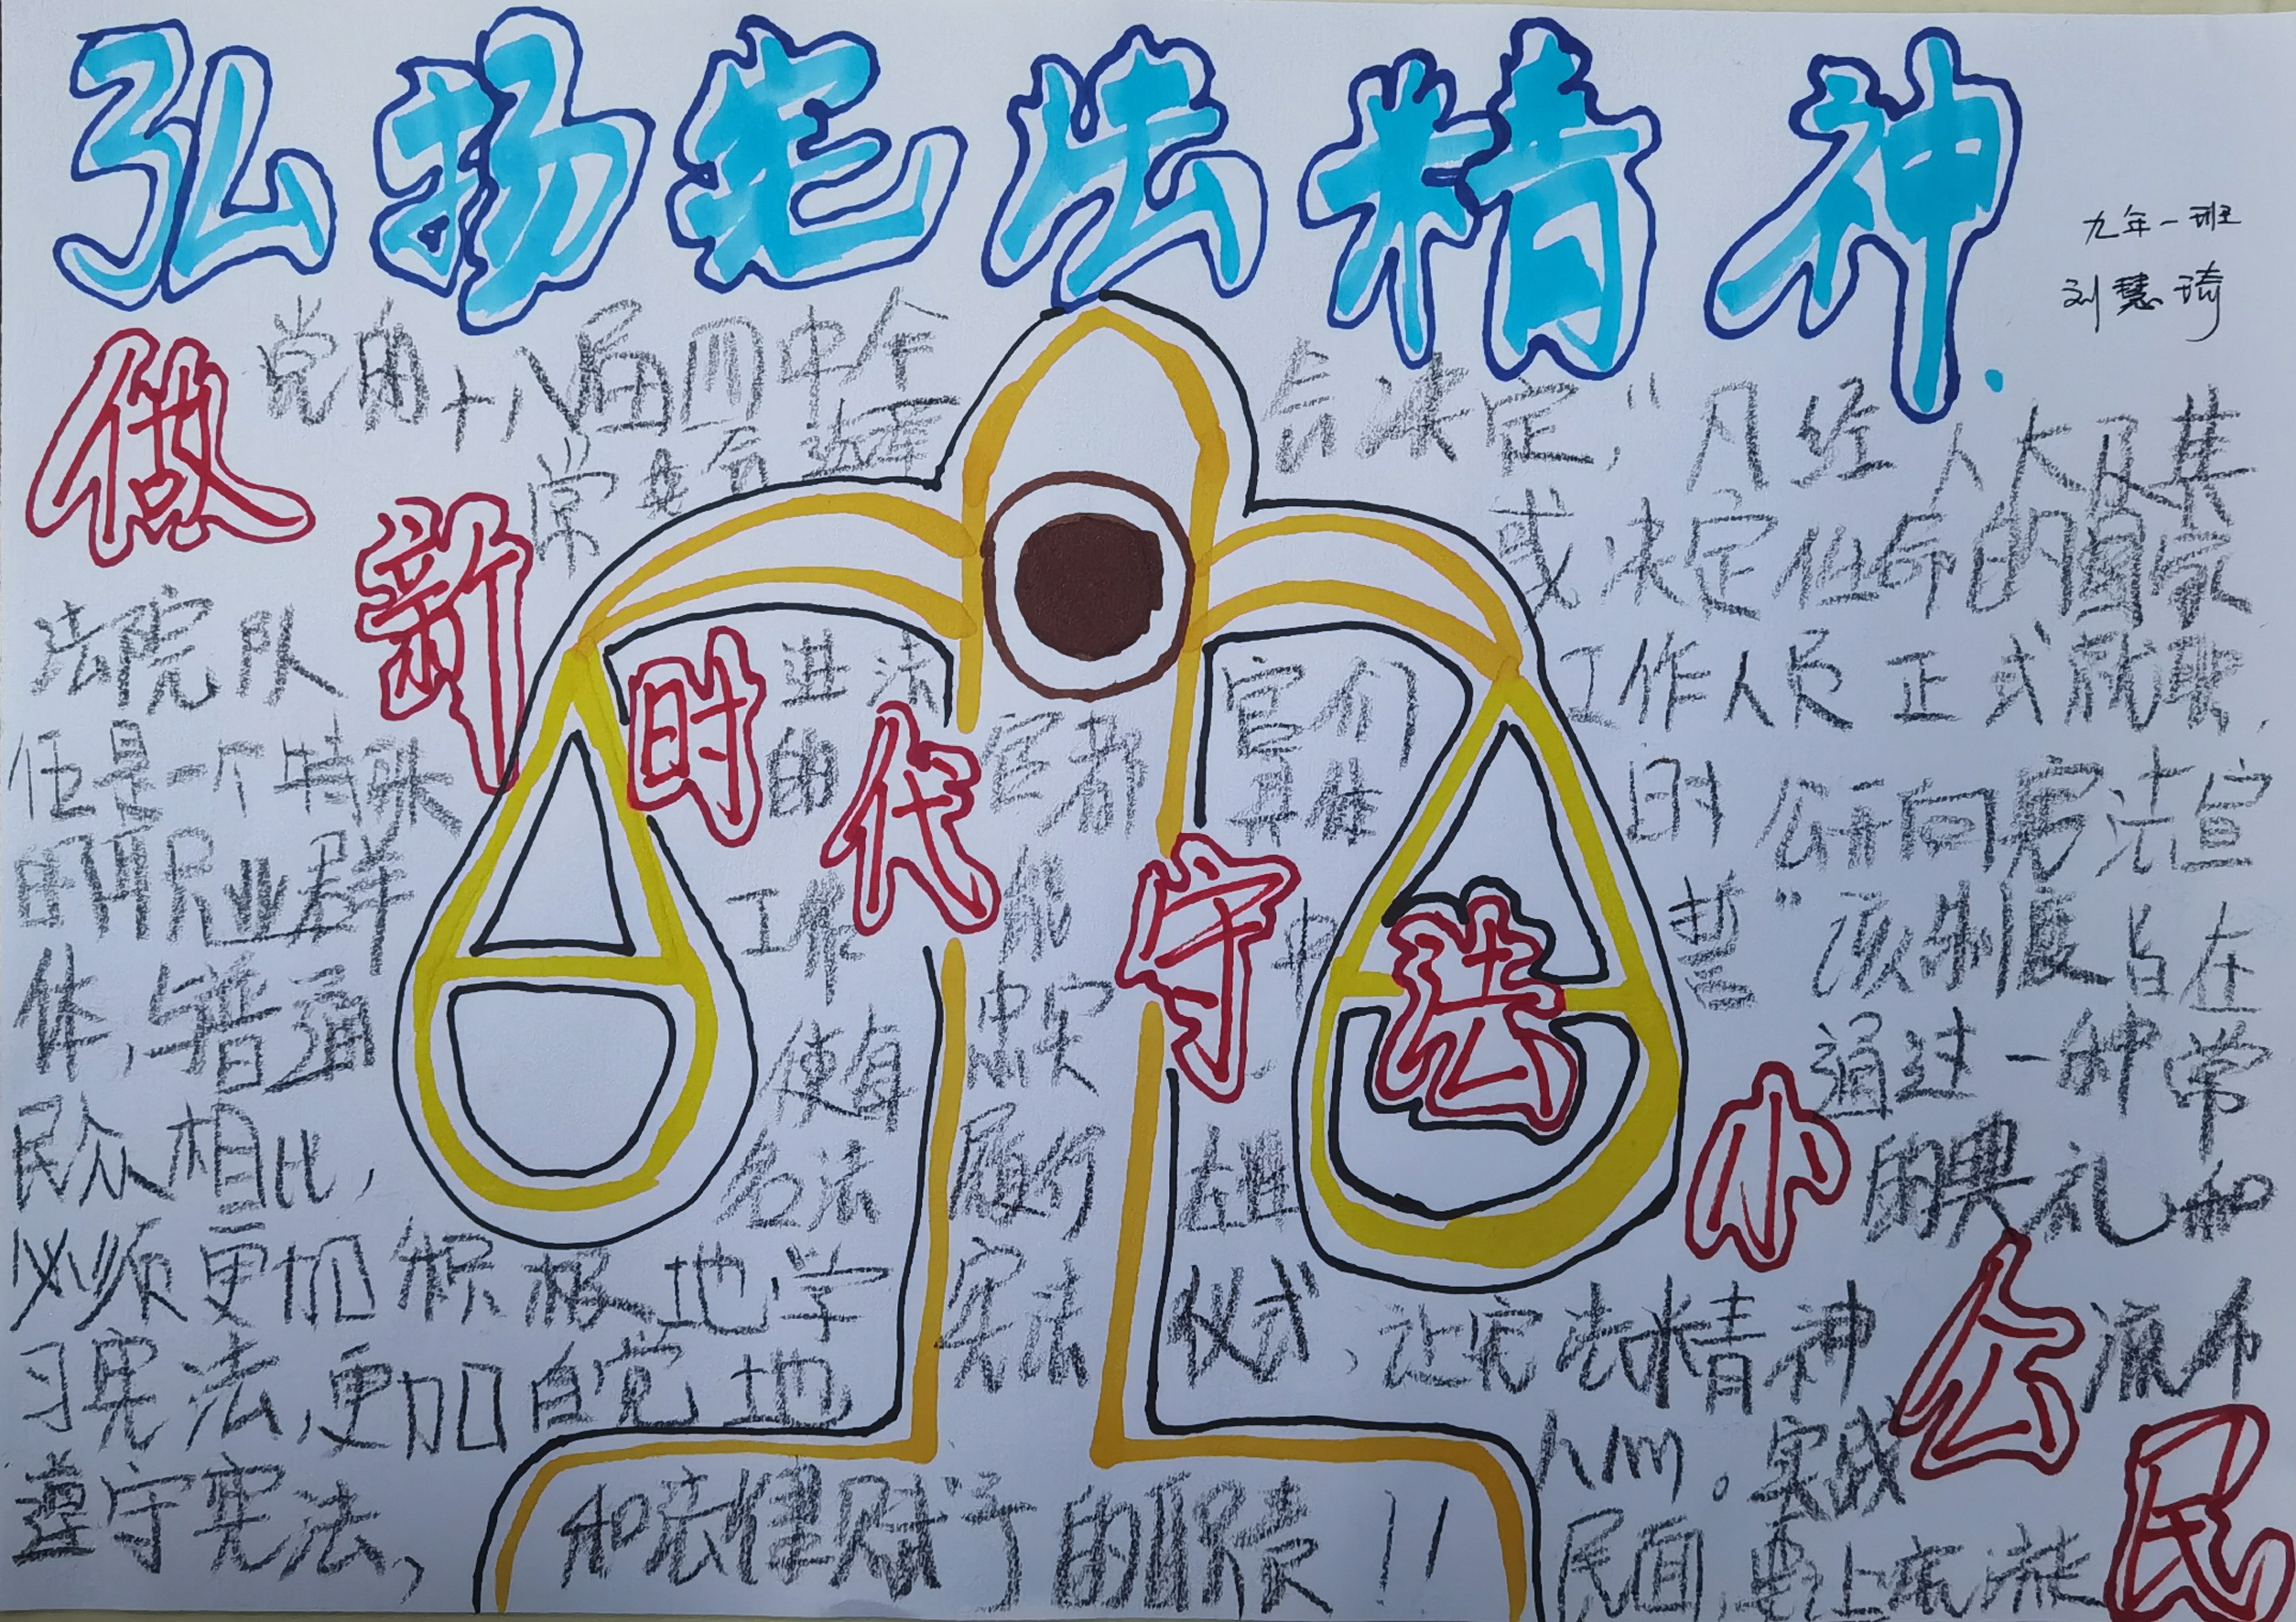 弘扬宪法精神
九年一班
刘慧琦
做新时代守法小公民
党的十八届四中全会决定，“凡经人大及其
常委会选举或决定任命的国家
工作人员正式就职
的公开向宪法宣
誓”该制度旨在
通过一种常
的典礼和
仪式、让宪法精神
流布
人间。实践
民面，要让宪法
法院队
伍是一个特殊
的职业群
体，与普通
民众相比，
必须更加积极地学
习宪法，更加自觉地
遵守宪法，
进法官们
的官都具体
工作能中
使有忠实
名法履行
宪法
和法律赋予的职责！！